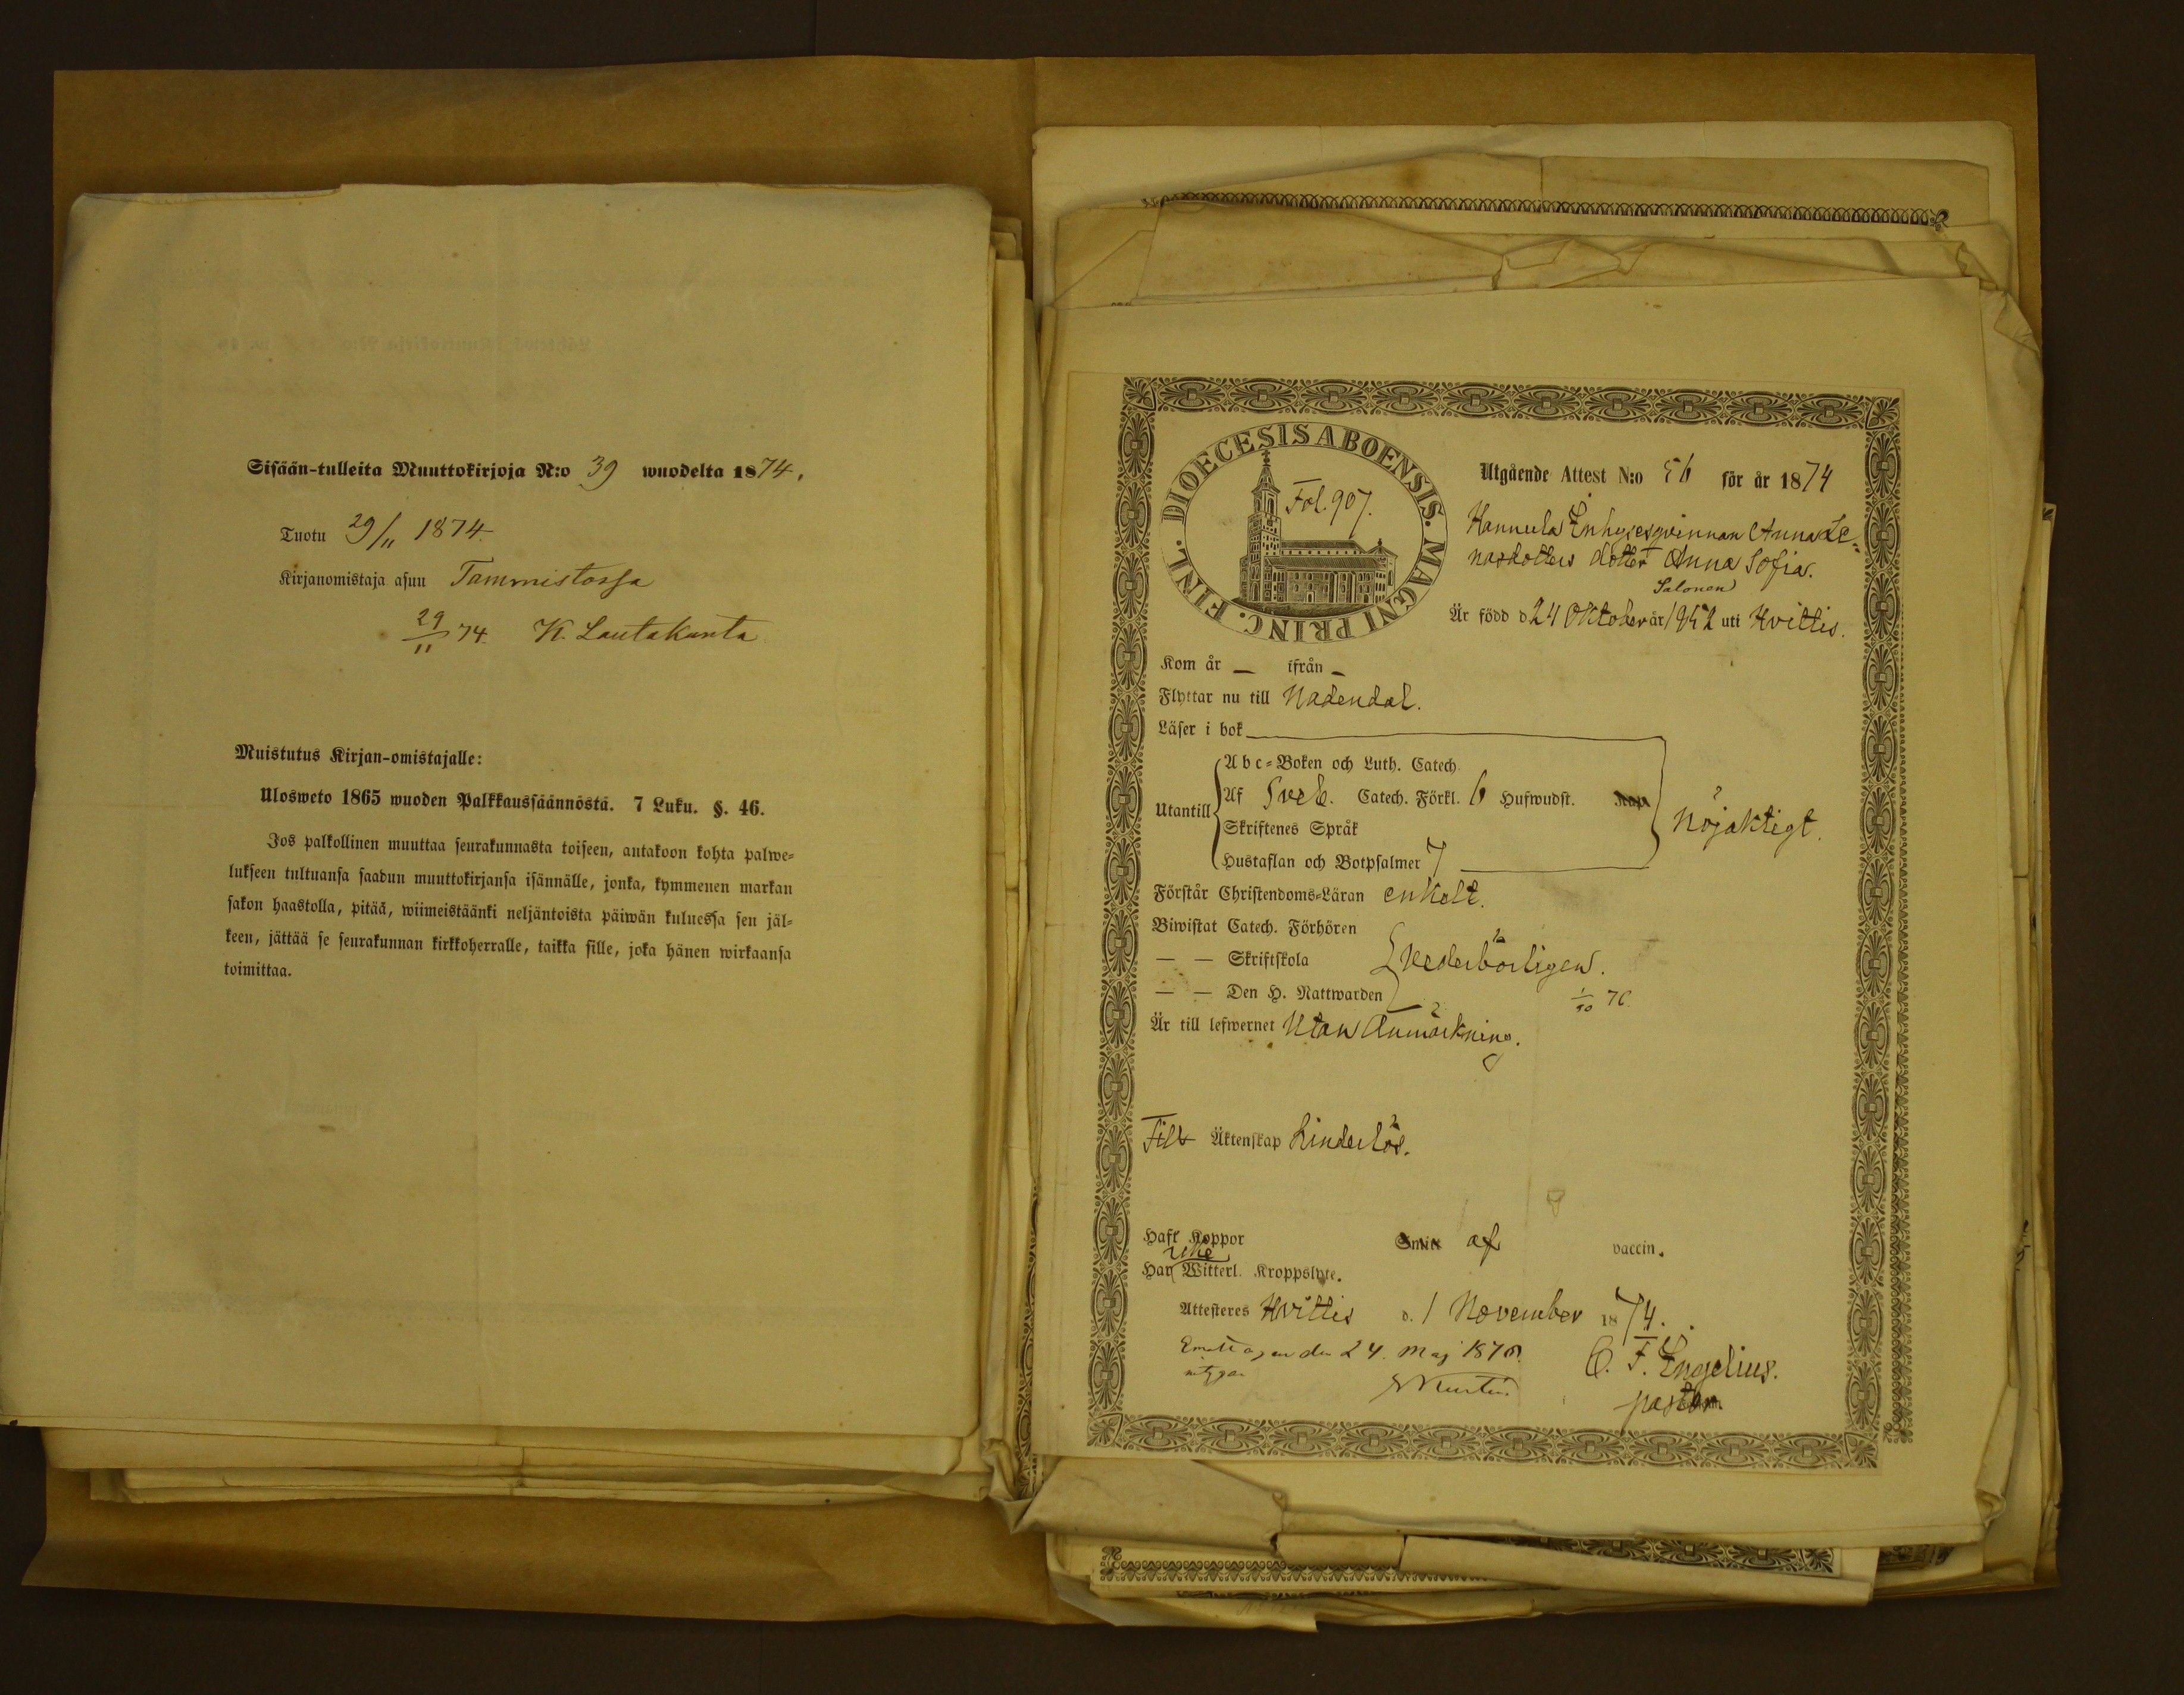 Sisään-tulleita Muuttokirjoja N:o 39 wuodelta 1874.
Tuotu 29/11 1874.
Kirjanomistaja asuu Tammistossa
29/11 74. K. Lautakanta
Muistutus Kirjan-omistajalle:
Ulosweto 1865 wuoden Palkkaussäännöstä. 7 Luku. §. 46.
Jos palkollinen muuttaa seurakunnasta toiseen, antakoon kohta palwe=
lukseen tultuansa saadun muuttokirjansa isännälle, jonka, kymmenen markan
sakon haastolla, pitää, wiimeistäänki neljäntoista päiwän kuluessa sen jäl=
keen, jättää se seurakunnan kirkkoherralle, taikka sille, joka hänen wirkaansa
toimittaa.
DIOECESIS ABOENSIS. MAGNI PRINC. FINL.
Fol. 907.
Utgående Attest N:o 56 för år 1874
Hannula Inhysesqvinnan Anna Le=
nasdotters dotter Anna Sofia.
Salonen
Är född d 24 Oktober år 1852 uti Hvittis.
Kom år — ifrån —
Flyttar nu till Nådendal.
Läser i bok
Abc=Boken och Luth. Catech.
Utantill
Af Sveb. Catech. Förkl. 6 Hufwudst.
Skriftenes Språk
Hustaflan och Botpsalmer 7
nöjaktigt.
Förstår Christendoms=Läran enkelt.
Biwistat Catech. Förhören
— — Skriftskola
vederbörligen.
— — Den H. Nattwarden
1/10 76.
Är till lefwernet Utan Anmärkning.
Till Äktenskap hinderlös.
Haft Koppor af vaccin.
icke
Har Witterl. Kroppslyte.
Attesteres Hvittis d. 1 November 1874.
den 24. Maj 1876.
C. F. Engelius.
pastor.